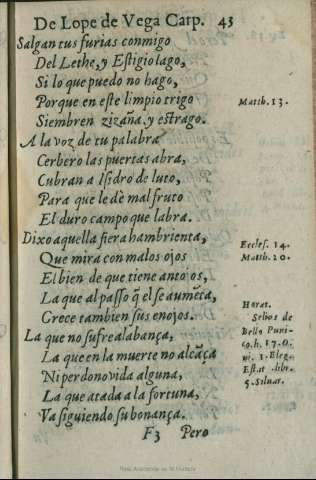 De Lope de Vega Carp. 43
Salgan tus furias conmigo
Del Lethe, y Estigio lago,
Si lo que puedo no hago,
Porque en este limpio trigo
Matth. 13.
Siembren zizaña, y estrago.
A la voz de tu palabra
Cerbero las puertas abra,
Cubran a Isidro de luto,
Para que le dè mal fruto
El duro campo que labra.
Dixo aquella fiera hambrienta,
Eccles. 14.
Que mira con malos ojos
Matth. 20.
El bien de que tiene antojos,
La que al passo q̃ el se aumẽta,
Horat.
Crece tambien sus enojos.
Selios de
La que no sufre alabança,
Bello Puni-
co. h. 17. O.
La que en la muerte no alcãça
ui. 1. Eleg.
Ni perdono vida alguna,
Estat. libr.
5. Siluar.
La que atada a la fortuna,
Va siguiendo su bonança.
F3 Pero